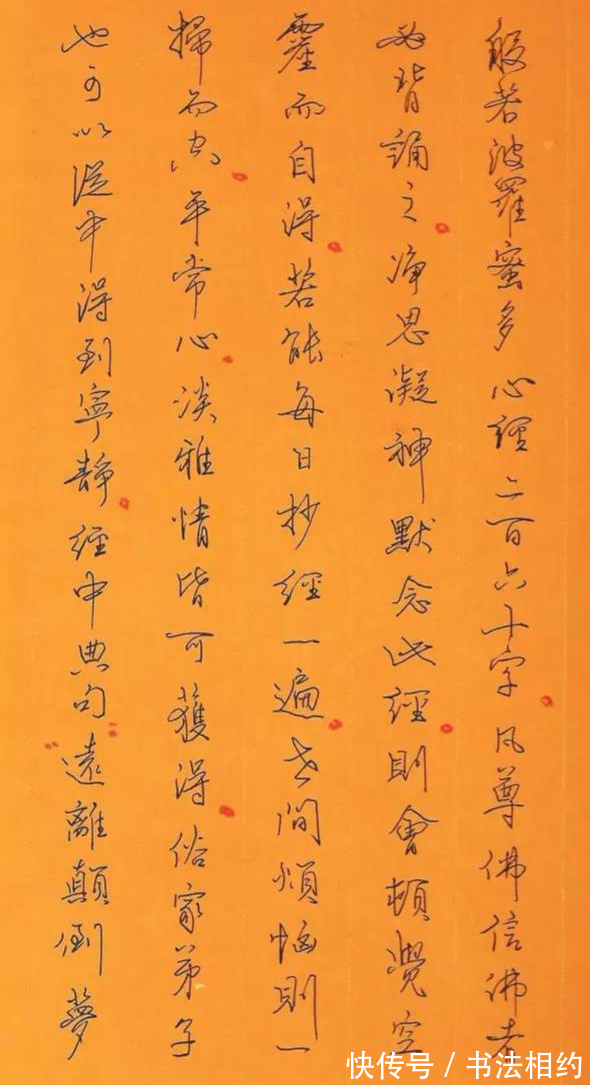 般若波羅蜜多心經二百六十字凡尊佛信佛者
必背誦之淨思凝神默念此經則會頓覺空
靈而自得若能每日抄經一遍世間煩惱則一
掃而空平常心淡雅情皆可獲得俗家弟子
也可以從中得到寧靜經中典句"遠離顛倒夢
快传号/书法相约